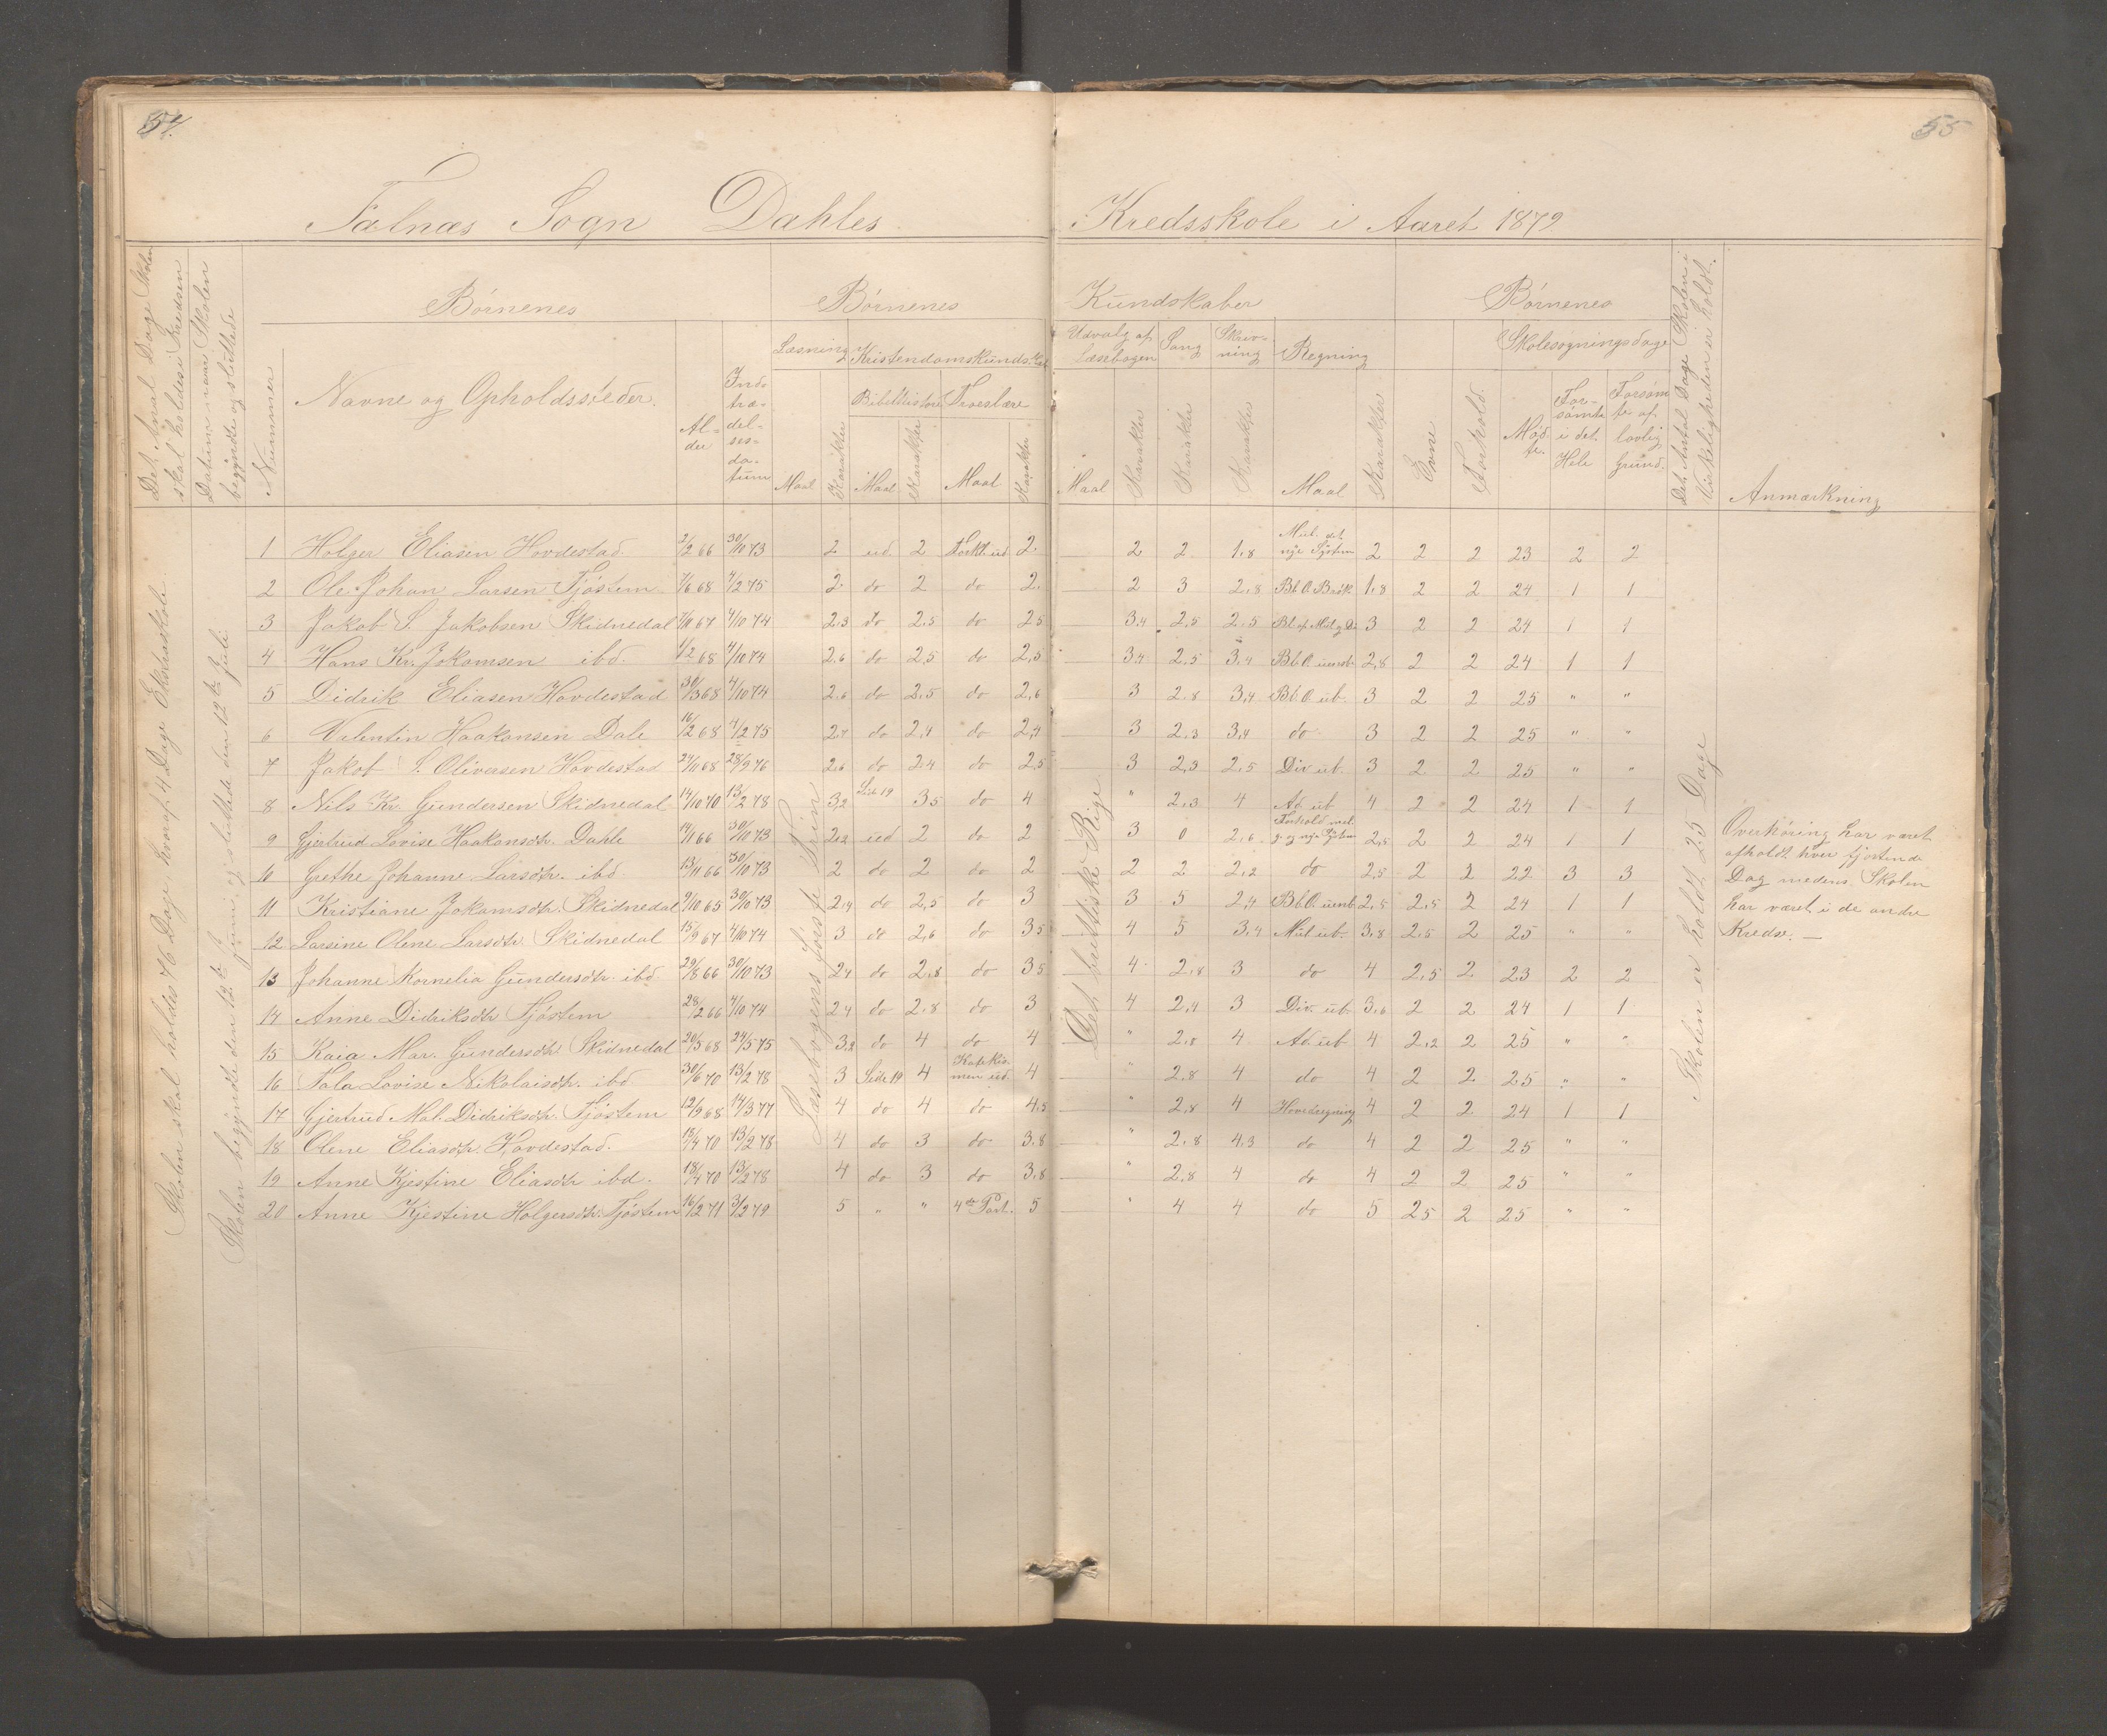 54.
55
Falnæs Sogn Dahles Kredsskole i Aaret 1879
Det Antal Dage Skolen skal holdes i Kredsen
Datum, naar Skolen begyndte og sluttede
Nummer
Børnenes
Navne og Opholdssteder.
Al=der
Ind=træ=del=ses=da=tum
Børnenes Kundskaber
Læsning
Maal
Karakter
Kristendomskundskab
Bibelhistorie
Maal
Karakter
Troeslære
Maal
Karakter
Udvalg af Læsebogen
Maal
Karakter
Sang
Karakter
Skriv=ning
Karakter
Regning
Maal
Karakter
Børnenes
Evne
Forhold
Skolesøgningsdage
Mød-te.
For-sømte i det Hele
Forsøm te af lovlig Grund.
Det Antal Dage Skolen i Virkeligheden er holdt.
Anmærkning
Skolen skal holdes 76 Dage hvoraf 4 Dage Ekstraskole.
Skolen begyndte den 12te Juni og sluttede den 12te Juli
Læsebogens første Trin
Det brittiske Rige
Skolen er holdt 25 Dage
1 Holger Eliasen Hovdestad 2/2 66 30/10 73 2 ud. 2 Forkl. ud 2. 2 2 1.8 Mul. det nye System 2 2 2 23 2 2
2 Ole Johan Larsen Fjøstem 7/6 68 4/2 75 2 do 2 do 2. 2 3 2.8 Bl. O. Brøk 1.8 2 2 24 1 1
3 Jakob S. Jakobsen Skidnedal 7/11 67 4/10 74 2.3 do 2.5 do 2 5 3.4 2.5 2.5 3 2 2 24 1 1
4 Hans Kr. Jokamsen ibd. 1/2 68 4/10 74 2.6 do 2.5 do 2,5 3.4 2.5 3.4 Bl. O. uenb. 2,8 2 2 24 1 1
5 Didrik Eliasen Hovdestad 30/3 68 4/10 74 2.6 do 2.5 do 2,6 3 2.8 3,4 Bl. O. ub. 3 2 2 25 " "
6 Valentin Haakonsen Dale 16/2 68 4/2 75 2.7 do 2.4 do 2,4 3 2.3 3,4 do 3 2 2 25 " "
7 Jakob S. Oliversen Hovdestad 24/11 68 28/9 76 2.6 do 2.4 do 2,5 3 2,3 2.5 Div. ub. 3 2 2 25 " "
8 Nils Kr. Gundersen Skidnedal 14/10 70 13/2 78 3,2 Side 19 3 5 do 4 " 2.3 4 Ad. ub 4 2 2 24 1 1
9 Gjertrud Lovise Haakonsdtr. Dahle 14/1 66 30/10 73 2,2 ud 2 do 2 3 0 2.6 2,5 2 2 24 1 1
10 Grethe Johanne Larsdtr. ibd 13/11 66 30/10 73 2 do 2 do 2 2 2 2,2 do 2,5 2 2 22 3 3
11 Kristiane Jokamsdtr. Skidnedal 9/10 65 30/10 73 2,4 do 2,5 do 3 3 5 2,4 Bl. O. uenb 2,5 2,5 2 24 1 1
12 Larsine Olene Larsdtr. Skidnedal 15/9 67 4/10 74 3 do 2,6 do 3 5 4 5 3.4 Mul. ub. 3,8 2,5 2 25 " "
13 Johanne Kornelia Gundersdtr. ibd 29/8 66 30/10 73 2 4 do 2,8 do 3 5 4 2.8 3 do 4 2,5 2 23 2 2
14 Anne Didriksdtr Fjøstem 28/2 66 4/10 74 2 4 do 2.8 do 3 4 2,4 3 Div. ub. 3,6 2 2 24 1 1
15 Kaia Mar. Gundersdtr Skidnedal 20/5 68 24/5 75 3.2 do 4 do 4 " 2.8 4 Ad. ub 4 2,2 2 25 " "
16 Tala Lovise Nikolaisdtr. ibd 30/6 70 13/2 78 3 Side 19 4 Katekis-men ud. 4 " 2.8 4 do 4 2 2 25 " "
17 Gjertrud Mal. Didriksdtr. Fjøstem 12/9 68 14/3 77 4 do 4 do 4.5 " 2,8 4 Hovedregning 4 2 2 24 1 1
18 Olene Eliasdtr. Hovdestad. 18/4 70 13/2 78 4 do 3 do 3.8 " 2.8 4,3 do 4 2 2 25 " "
19 Anne Kjestine Eliasdtr ibd. 18/4 70 13/2 78 4 do 3 do 3.8 " 2.8 4 do 4 2 2 25 " "
20 Anne Kjestine Holgersdtr. Fjøstem 16/2 71 3/2 79 5 " " 4de Part. 5 " 4 4 do 5 2 5 2 25 " "
Overhøring har været
afholdt hver fjortende
Dag medens Skolen
har været i de andre
Kredse. —